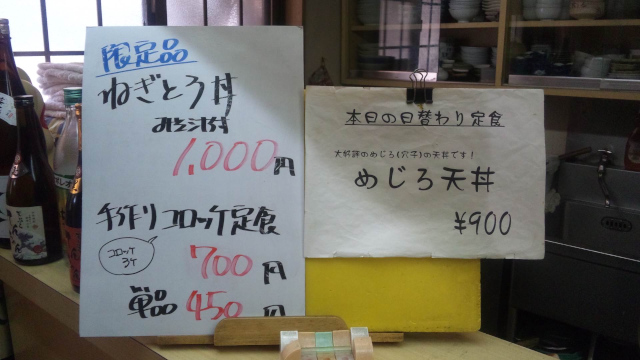 限定品
ねぎとろ丼
みそ汁付
1,000円
手作りコロッケ定食
コロッケ
3ケ
700円
単品 450円
本日の日替わり定食
大好評のめじろ(穴子)の天丼です!
めじろ天丼
¥900